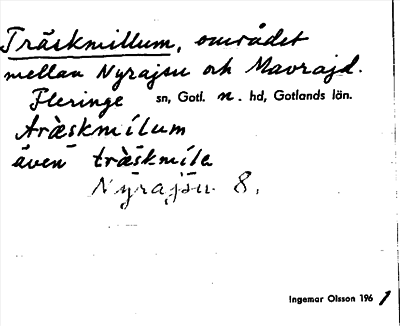 Träskmillum, området
mellan Nyrajsu och Mavrajd.
Fleringe sn, Gotl. n. hd, Gotlands län.
träskmilum
även träskmila
Nyrajsu 8.
Ingemar Olsson 1961